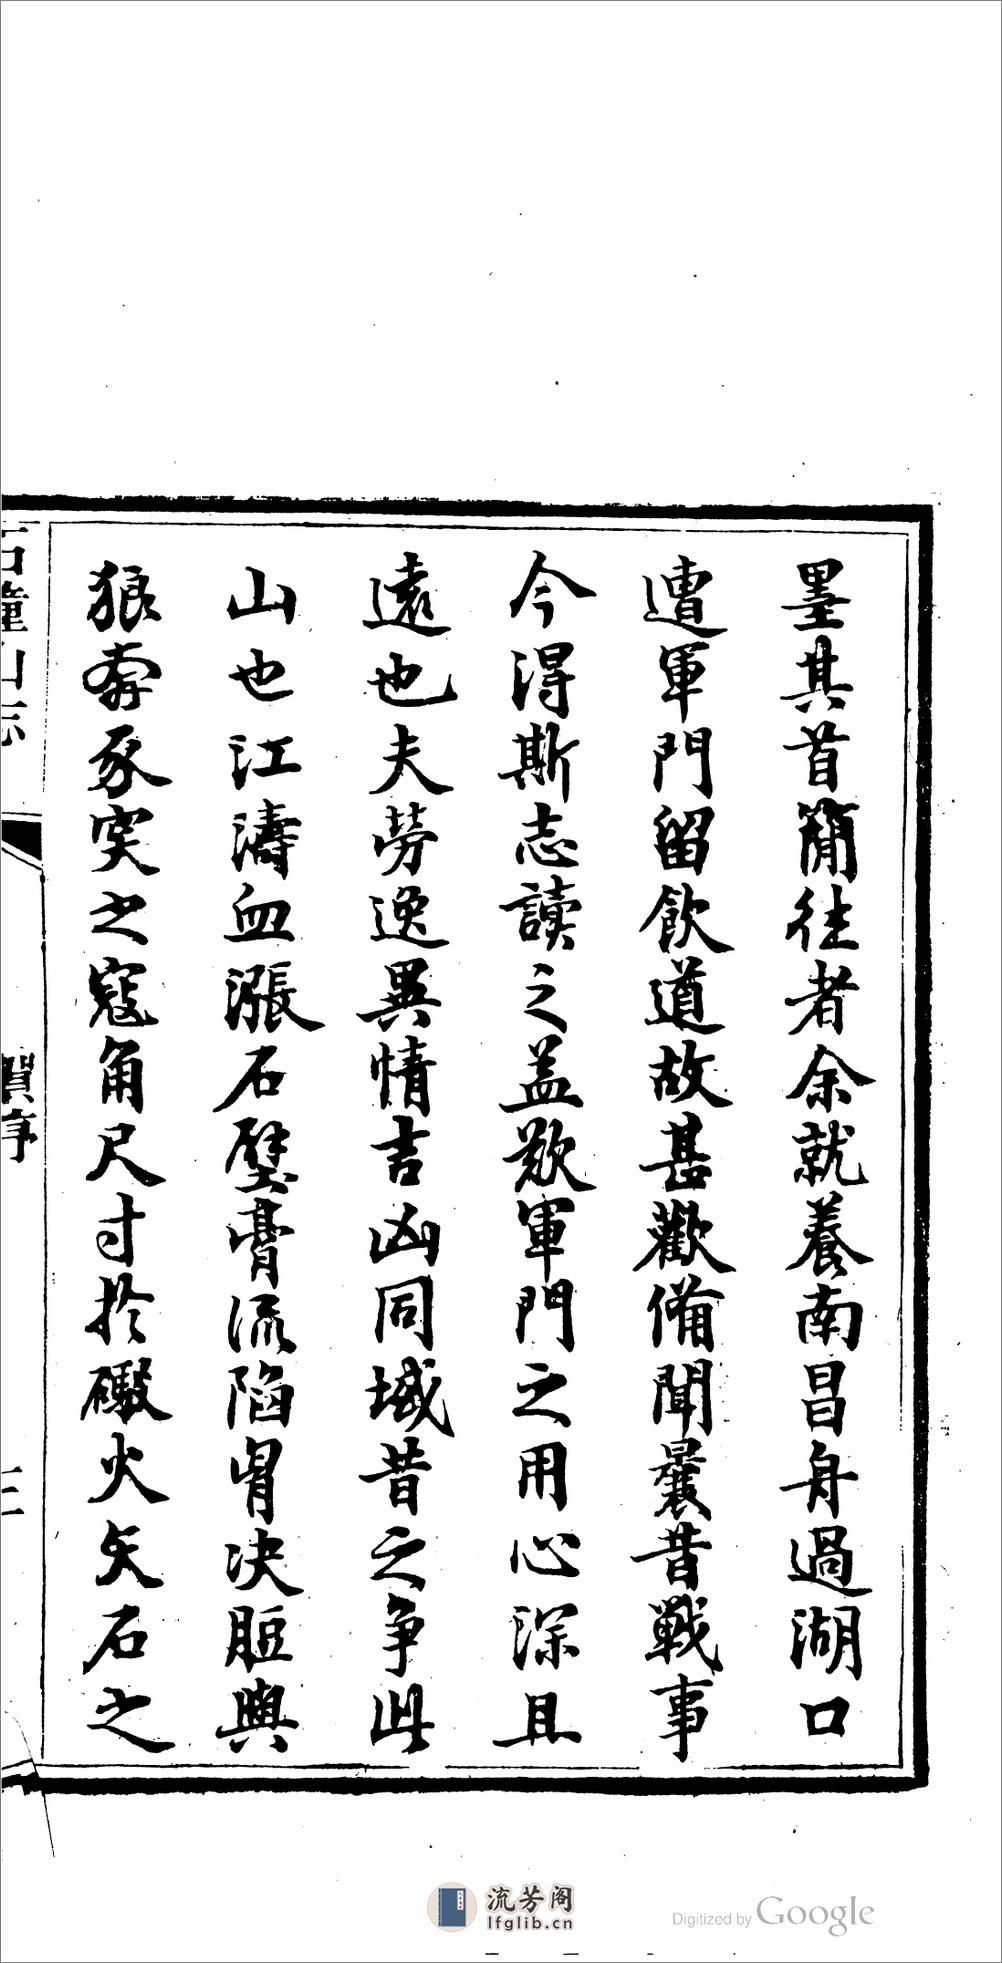 墨其首簡往者余就養南昌舟過湖口
遭軍門留飲道故甚歡備聞曩昔戰事
今得斯志讀之蓋歎軍門之用心深且
遠也夫勞逸異情吉凶同域昔之爭此
山也江濤血漲石壁膏流陷胃決脰與
狼奔豕突之寇角尺寸於礮火矢石之
石鐘山志
賀序
三
流芳阁
lfglib.cn
Digitized by Google